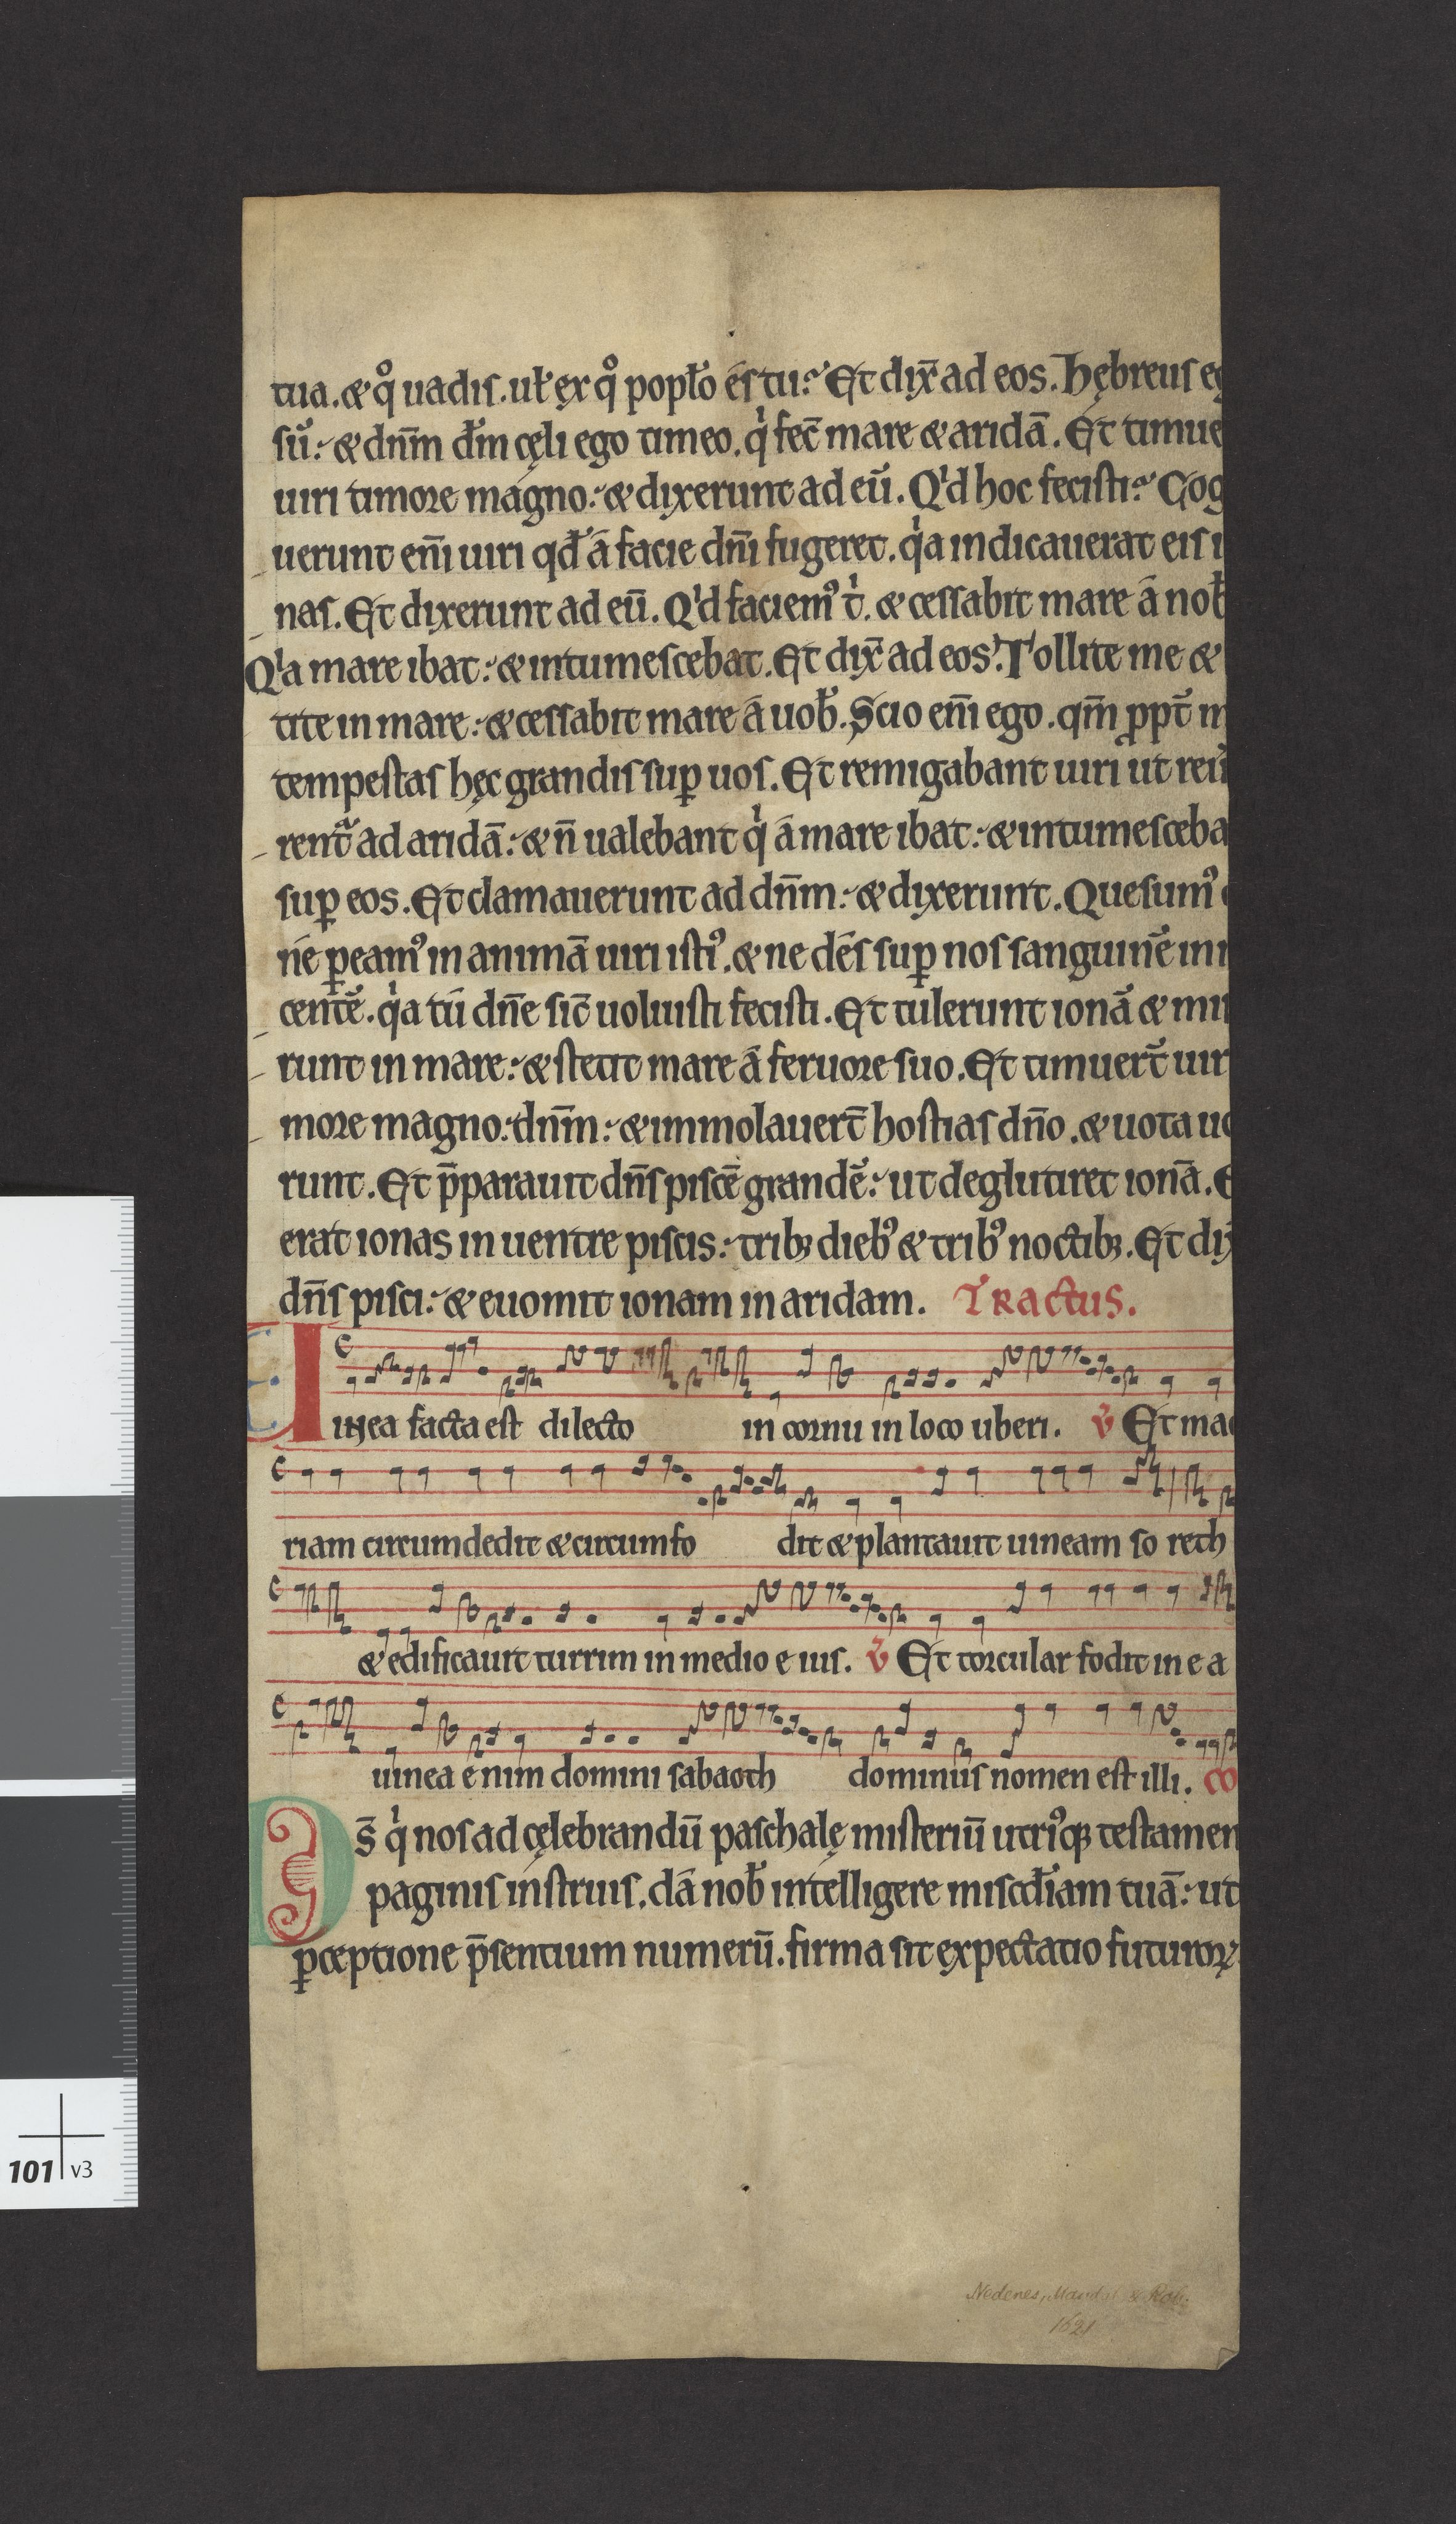 tua. & qͦ uadis. ul̄ ex qͦ popl̄o es tu? Et dix̄ ad eos. Hębreus eg
sū. & dn̄m dm̄ cęli ego timeo. qͥ fec̄ mare & aridā. Et timue
uiri timore magno. & dixerunt ad eū. Qͥd hoc fecisti? Cog
uerunt en̄i uiri qd̄ a facie dn̄i fugeret. qͥa indicauerat eis i
nas. Et dixerunt ad eū. Qͥd faciemꝰ tͥ. & cessabit mare a nob̄
Qͥa mare ibat. & intumescebat. Et dix̄ ad eos. Tollite me &
tite in mare. & cessabit mare a uob̄. Scio en̄i ego. qm̄ ꝓpt̄ m
tempestas hęc grandis suꝑ uos. Et remigabant uiri ut reu̅
rent᷑ ad aridā. & n̄ ualebant qͥ a mare ibat. & intumesceba
suꝑ eos. Et clamauerunt ad dn̄m. & dixerunt. Quesumꝰ
ne ꝑeamꝰ in animā uiri istiꝰ. & ne des suꝑ nos sanguinē inn
centē. qͥa tu dn̄e sic̄ uoluisti fecisti. Et tulerunt ionā & mi
runt in mare. & stetit mare a feruore suo. Et timuert̄ uir
more magno. dn̄m. & immolauert̄ hostias dn̄o. & uota uo
runt. Et p̄parauit dn̄s piscē grandē. ut deglutiret ionā. E
erat ionas in uentre piscis. tribꝫ diebꝰ & tribꝰ noctibꝫ. Et dix
dn̄s pisci. & euomit ionam in aridam. Tractus.
Uinea facta est dilecto in cornu in loco uberi. V̄ Et mac
riam circumdedit & circumfo dit & plantauit uineam so rech
& edificauit turrim in medio e ius. V̄ Et torcular fodit in e a
uinea enim domini sabaoth dominus nomen est illi. co
Ds̄ qͥ nos ad cęlebrandū paschalę misteriū utriꝰqꝫ testamen
paginis instruis. da nob̄ intelligere miscd̄iam tuā. ut
ꝑceptione p̄sentium numerū. firma sit expectatio futuroꝝ
Nedenes, Mandal & Rob.
1621
101 v3